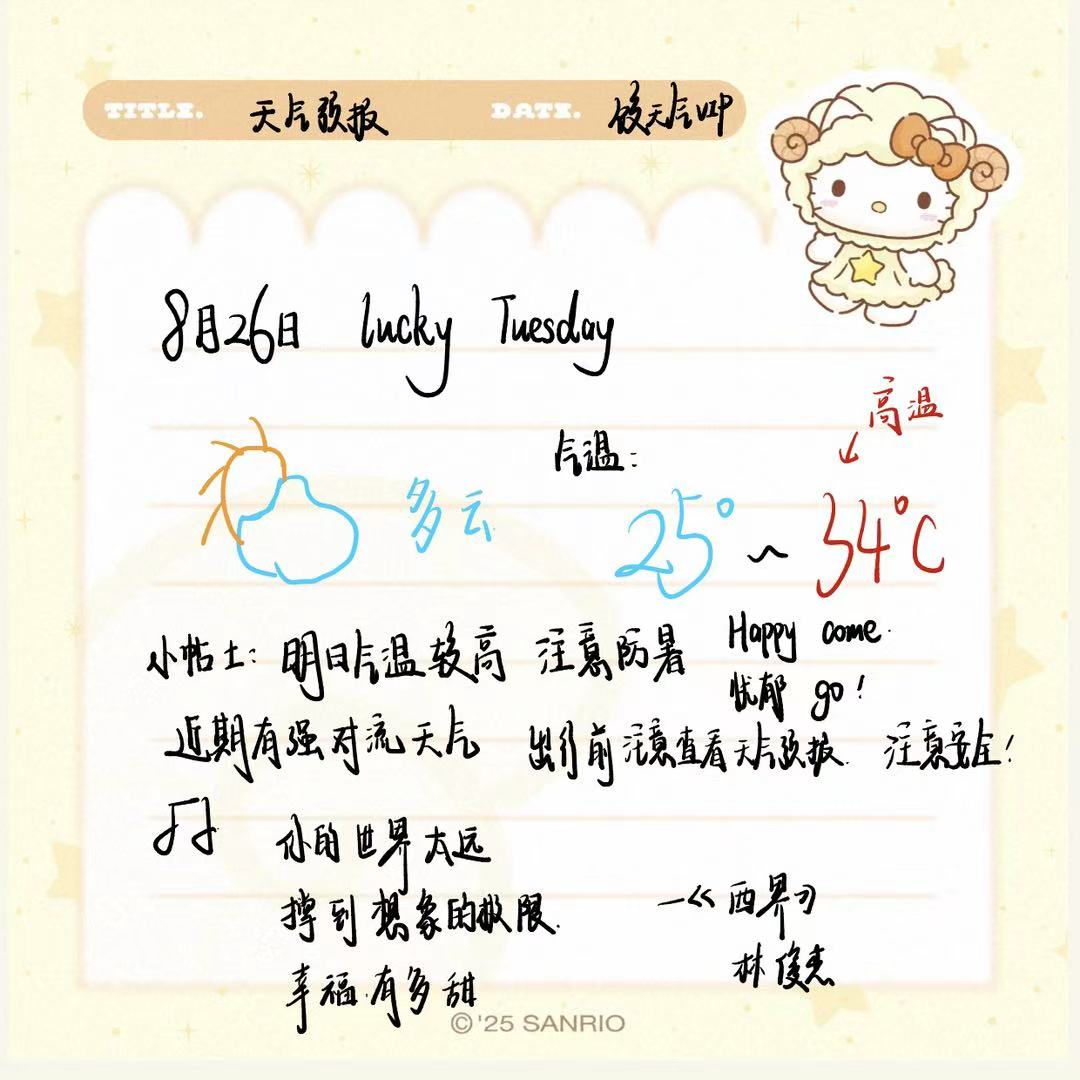 TITLE. 天气预报 DATE. 饺天气VIP
8月26日 lucky Tuesday
高温
气温:
多云 25° ~ 34°C
小帖士: 明日气温较高 注意防暑
Happy come.
忧郁 go!
近期有强对流天气 出行前注意查看天气预报. 注意安全!
你的世界太远
撑到想象的极限.
幸福.有多甜
—《西界》
林俊杰
©'25 SANRIO